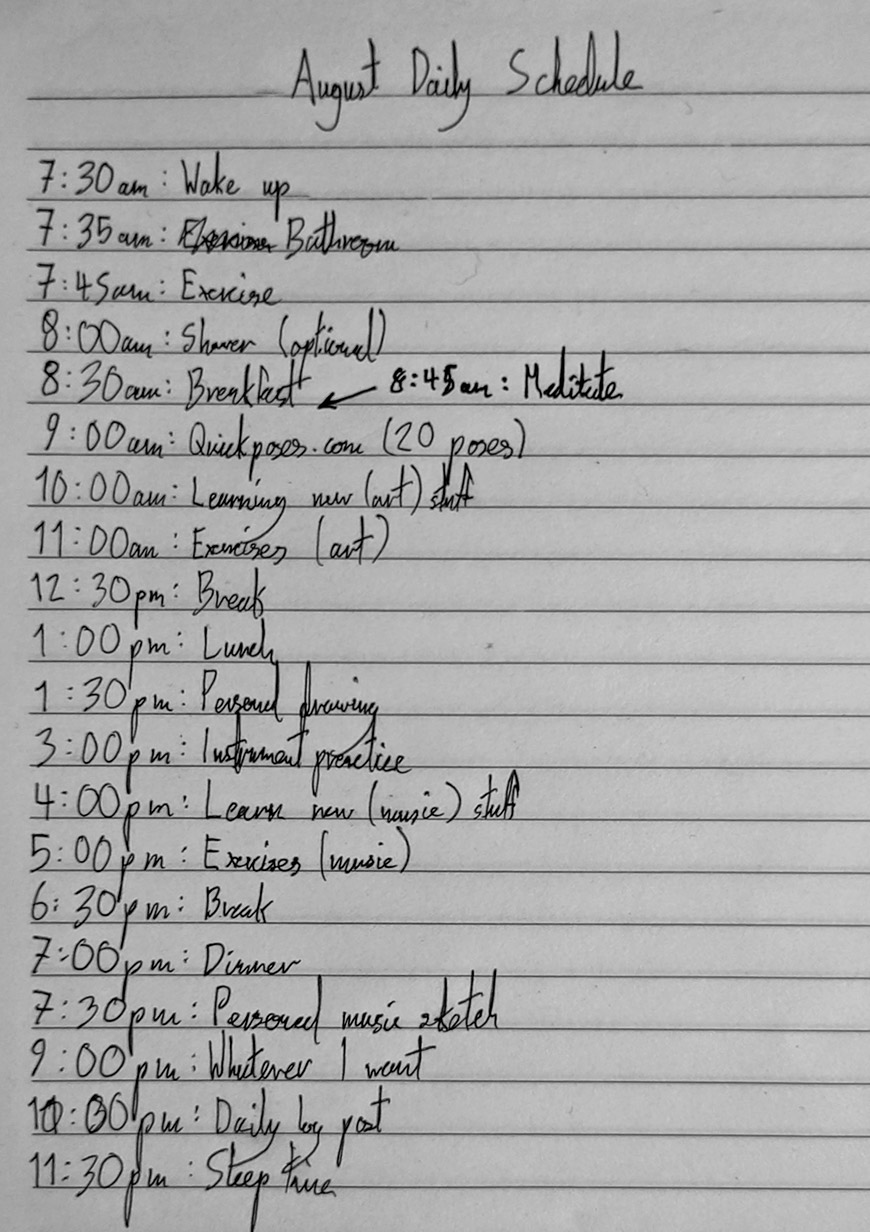 August Daily Schedule
7:30am: Wake up
7:35am: Bathroom
7:45am: Exercise
8:00am: Shower (optional)
8:30am: Breakfast
8:45am: Meditate
9:00am: Quickposes.com (20 poses)
10:00am: Learning new (art) stuff
11:00am: Exercises (art)
12:30pm: Break
1:00pm: Lunch
1:30pm: Personal drawing
3:00pm: Instrument practice
4:00pm: Learn new (music) stuff
5:00pm: Exercises (music)
6:30pm: Break
7:00pm: Dinner
7:30pm: Personal music sketch
9:00pm: Whatever I want
pm: Daily log post
11:30pm: Sleep time